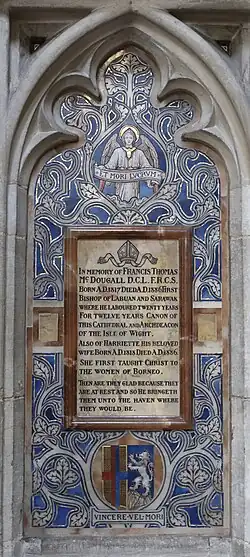 ET MORI LUCRUM
IN MEMORY OF FRANCIS THOMAS
MC DOUGALL D.C.L. F.R.C.S.
BORN A.D.1817 DIED A.D.1886 FIRST
BISHOP OF LABUAN AND SARAWAK
WHERE HE LABOURED TWENTY YEARS
FOR TWELVE YEARS CANON OF
THIS CATHEDRAL AND ARCHDEACON
OF THE ISLE OF WIGHT.
ALSO OF HARRIETTE HIS BELOVED
WIFE BORN A.D.1818 DIED A.D.1886
SHE FIRST TAUGHT CHRIST TO
THE WOMEN OF BORNEO.
THEN ARE THEY GLAD BECAUSE THEY
ARE AT REST AND SO HE BRINGETH
THEM UNTO THE HAVEN WHERE
THEY WOULD BE.
VINCERE·VEL·MORI